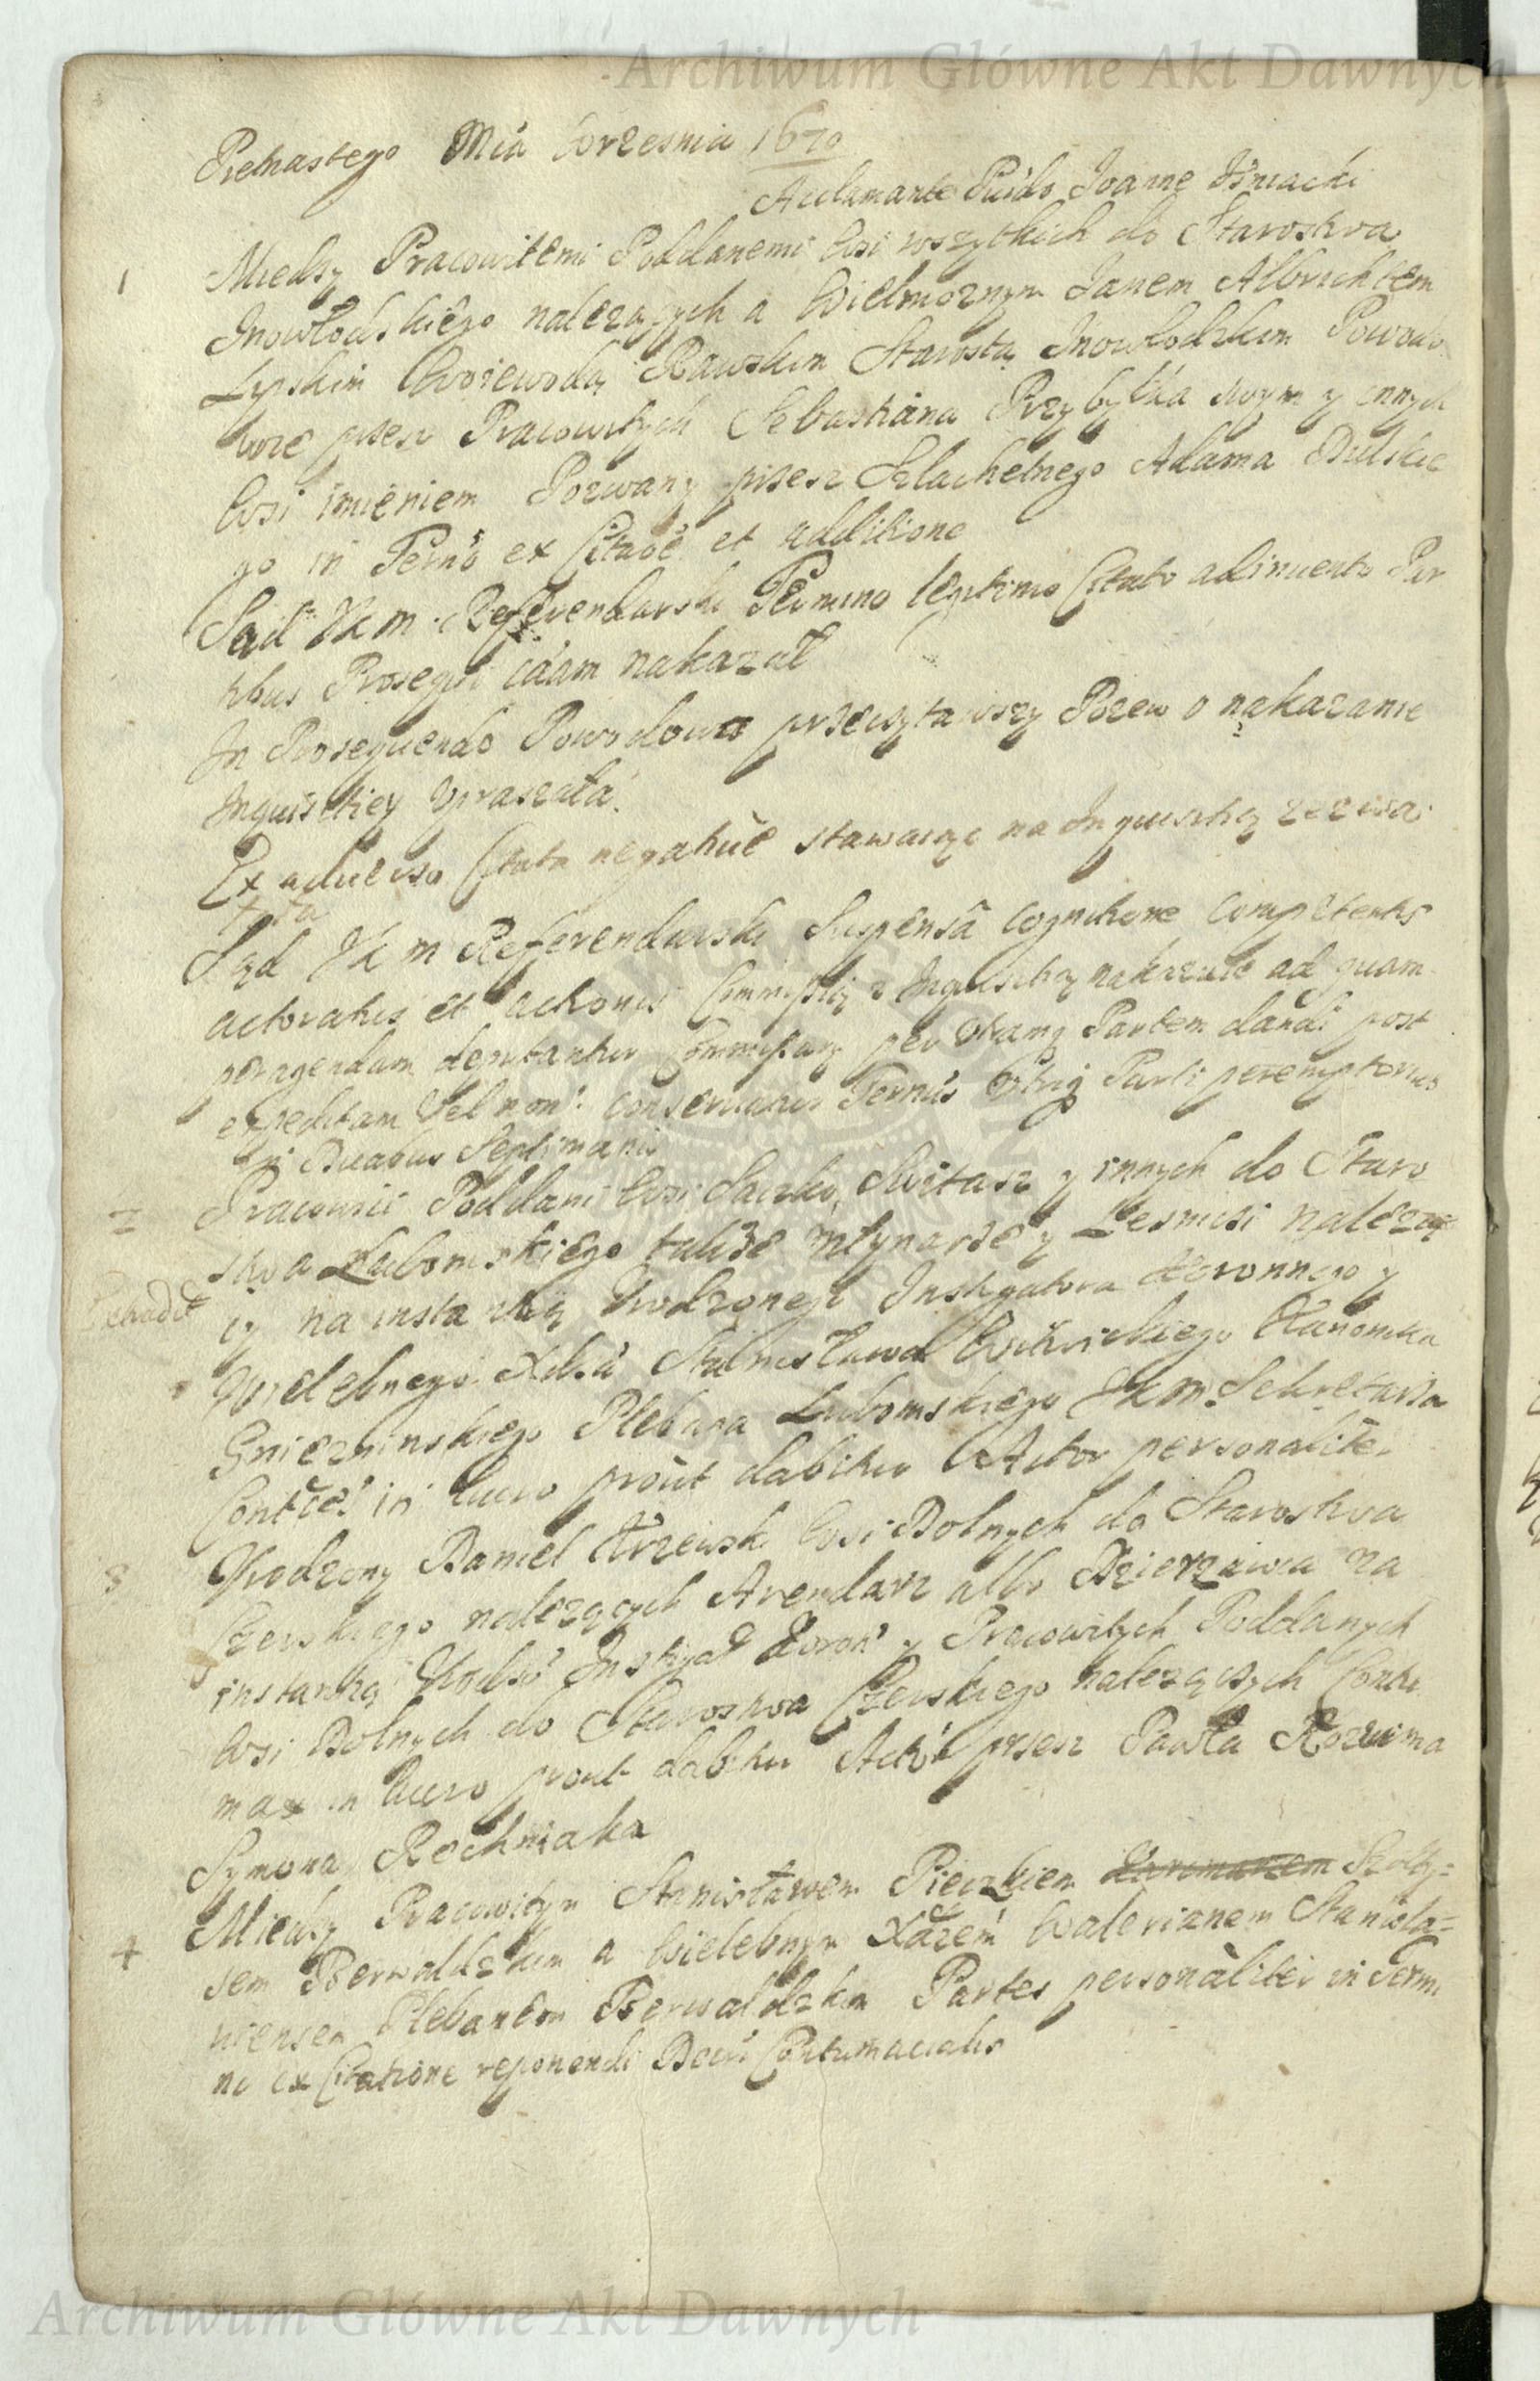 Archiwum Główne Akt Dawnych
Pietnastego Mca Wrzesnia 1670
Acclamante Joanne
1 Między Pracowitemi Poddanemi Wsi wszytkich do Starostwa
Inowłodskiego należących a Wielmoznym Janem Albrichtem
Lypskim Woiewodą Rawskim Starostą Inowłodzkim Powodo
wie przez Pracowitych Sebastiana Przybyłka swym y innych
Wsi imieniem Pozwany przez Szlachetnego Adama Dulskie
go in Termo ex Citaoe et additione
Sąd JKM Referendarski Termino legitimo Citato adinuento Par
tibus Prosequi caam nakazał
In Prosequendo Powodowa przeczytawszy Pozew o nakazanie
Inquisitiey vpraszała
Ex aduerso Citata negatiue stawaiąc na Inquisitią zezwa
Sąd JKM Referendarski Suspensa cognitione competentis
actoratus et actionis Commissią z Inquisitią nakazuie ad quam
peragendam deputantur Commissarij per Partem dandi post
expeditam Vel non conseruatur Termus Vtriq Parti peremptorius
in Duabus Septimanis
2 Pracowici Poddani Wsi Switasz y innych do Staro
stwa Lubomskiego także Młynarze y Lesnisi należą
cy na instantią Vrodzonego Instygatora Koronnego y
Wielebnego Xdza Stanisława Kanonika
Gniezninskiego Plebana Lubomskiego JKM Sekretarza
Conttes in Euero prout dabitur Actor personaliter
3 Vrodzony Daniel Wsi Dolnych do Starostwa
Czerskiego należących Arendarz albo Dzierzawca na
instantią Instygat Koron y Pracowitych Poddanych
Wsi Dolnych do Starostwa Czerskiego należących Contu
max in Euero prout dabitur Actor przez Pawła
Symona Rochniaka
4 Między Pracowitym Stanisławem Pieczkiem Szołty=
sem Berwaldzkim a Wielebnym Xdzem Walerianem
Plebanem Berwaldzkim Partes personaliter in Termi
no ex Citatione reponendi Decri Contumacialis
Archiwum Główne Akt Dawnych